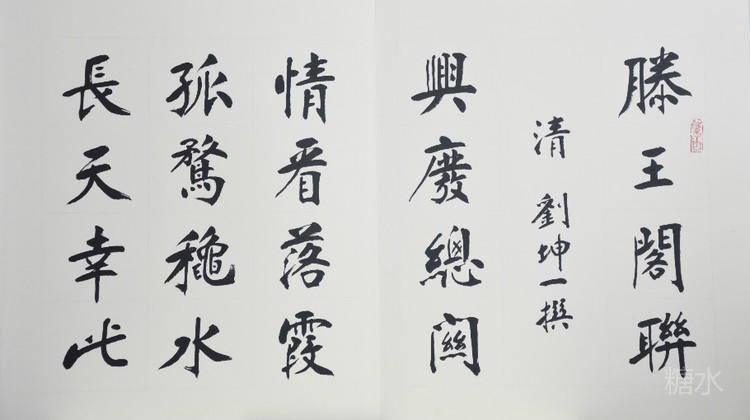 滕王閣聯
清 劉坤一撰
興廢總關
情看落霞
孤鶩穐水
長天幸此
糖水